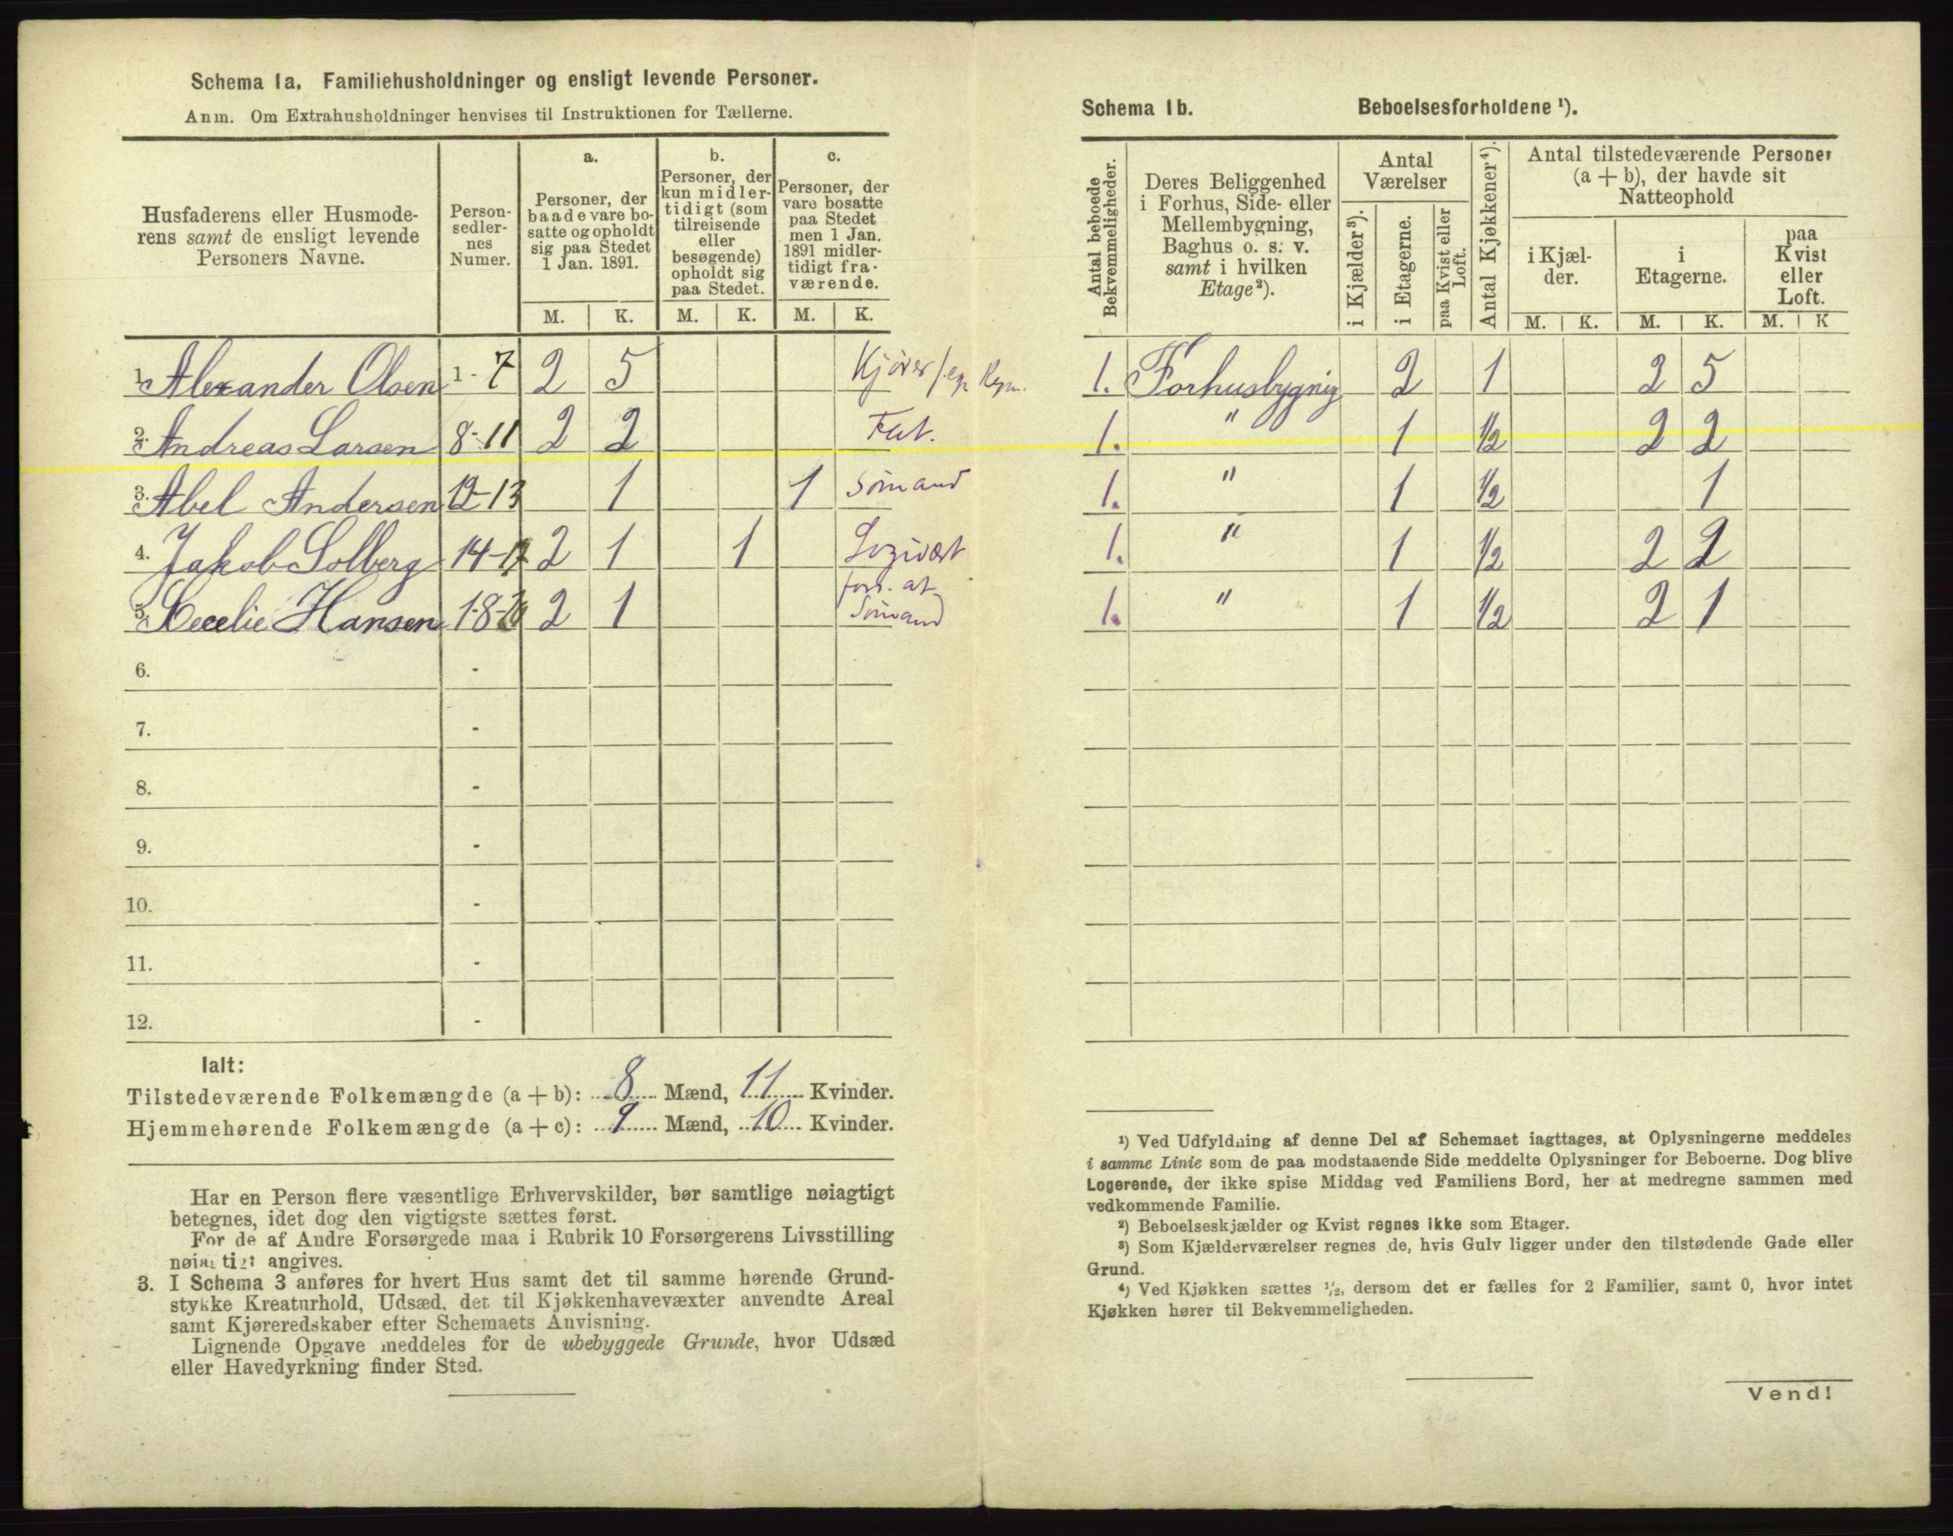 Schema 1a. Familiehusholdninger og ensligt levende Personer.
Anm. Om Extrahusholdninger henvises til Instruktionen for Tællerne.
Husfaderens eller Husmode-
rens samt de ensligt levende
Personers Navne.
Person-
sedler-
nes
Numer.
a.
Personer, der
baade vare bo-
satte og opholdt
sig paa Stedet
1 Jan. 1891.
b.
Personer, der
kun midler-
tidigt (som
tilreisende
eller
besøgende)
opholdt sig
paa Stedet.
c.
Personer, der
vare bosatte
paa Stedet
men 1 Jan.
1891 midler-
tidigt fra-
værende.
M. K. M. K. M. K.
1. Alexander Olsen 1 - 7 2 5 Kjører
2. Andreas Larsen 8-11 2 2 Fat.
3. Abel Andersen 12-13 1 1 Sømand
4. Jakob Solberg 14-17 2 1 1 Logivært
5. Secelie Hansen 18-20 2 1 fors. af
Sømand
6. -
7. -
8. -
9. -
10. -
11. -
12. -
Ialt:
Tilstedeværende Folkemængde (a + b): 8 Mænd, 11 Kvinder.
Hjemmehørende Folkemængde (a + c): 9 Mænd, 10 Kvinder.
Har en Person flere væsentlige Erhvervskilder, bør samtlige nøiagtigt
betegnes, idet dog den vigtigste sættes først.
For de af Andre Forsørgede maa i Rubrik 10 Forsørgerens Livsstilling
nøiagtigt angives.
3. I Schema 3 anføres for hvert Hus samt det til samme hørende Grund-
stykke Kreaturhold, Udsæd, det til Kjøkkenhavevæxter anvendte Areal
samt Kjøreredskaber efter Schemaets Anvisning.
Lignende Opgave meddeles for de ubebyggede Grunde, hvor Udsæd
eller Havedyrkning finder Sted.
Schema 1b. Beboelsesforholdene ¹).
Antal beboede
Bekvemmeligheder.
Deres Beliggenhed
i Forhus, Side- eller
Mellembygning,
Baghus o. s. v.
samt i hvilken
Etage²).
Antal
Værelser
i Kjælder³).
i Etagerne.
paa Kvist eller
Loft.
Antal Kjøkkener⁴).
Antal tilstedeværende Personer
(a + b), der havde sit
Natteophold
i Kjæl-
der.
i
Etagerne.
paa
Kvist
eller
Loft.
M. K. M. K. M. K
1. Forhusbygnig 2 1 2 5
1. " 1 ½ 2 2
1. " 1 ½ 1
1. " 1 ½ 2 2
1. " 1 ½ 2 1
¹) Ved Udfyldning af denne Del af Schemaet iagttages, at Oplysningerne meddeles
i samme Linie som de paa modstaaende Side meddelte Oplysninger for Beboerne. Dog blive
Logerende, der ikke spise Middag ved Familiens Bord, her at medregne sammen med
vedkommende Familie.
²) Beboelseskjælder og Kvist regnes ikke som Etager.
³) Som Kjælderværelser regnes de, hvis Gulv ligger under den tilstødende Gade eller
Grund.
⁴) Ved Kjøkken sættes ½, dersom det er fælles for 2 Familier, samt 0, hvor intet
Kjøkken hører til Bekvemmeligheden.
Vend!